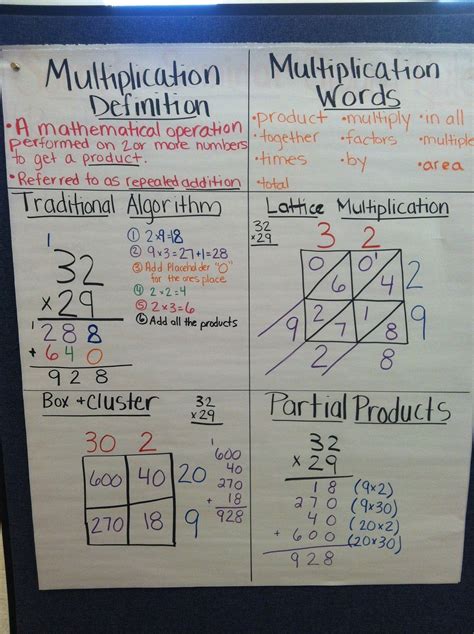 Multiplication
Definition
• A mathematical operation
performed on 2 or more numbers
to get a product.
• Referred to as repeated addition
Multiplication
Words
• product • multiply • in all
• together • factors • multiple
• times • by • area
• total
Traditional Algorithm
1
32
x29
1
288
+ 640
928
① 2x9=18
② 9x3=27+1=28
③ Add Placeholder "0"
for the ones place
④ 2x2=4
⑤ 2x3=6
⑥ Add all the products
Lattice Multiplication
32
x29
3 2
0 6 0 1 4 2
9 2 7 1 8 9
2 8
Box + Cluster
32
x29
30 2
600 40 20
270 18 9
1
600
40
270
+ 18
928
Partial Products
32
x 29
18 (9x2)
270 (9x30)
40 (20x2)
+ 600 (20x30)
928